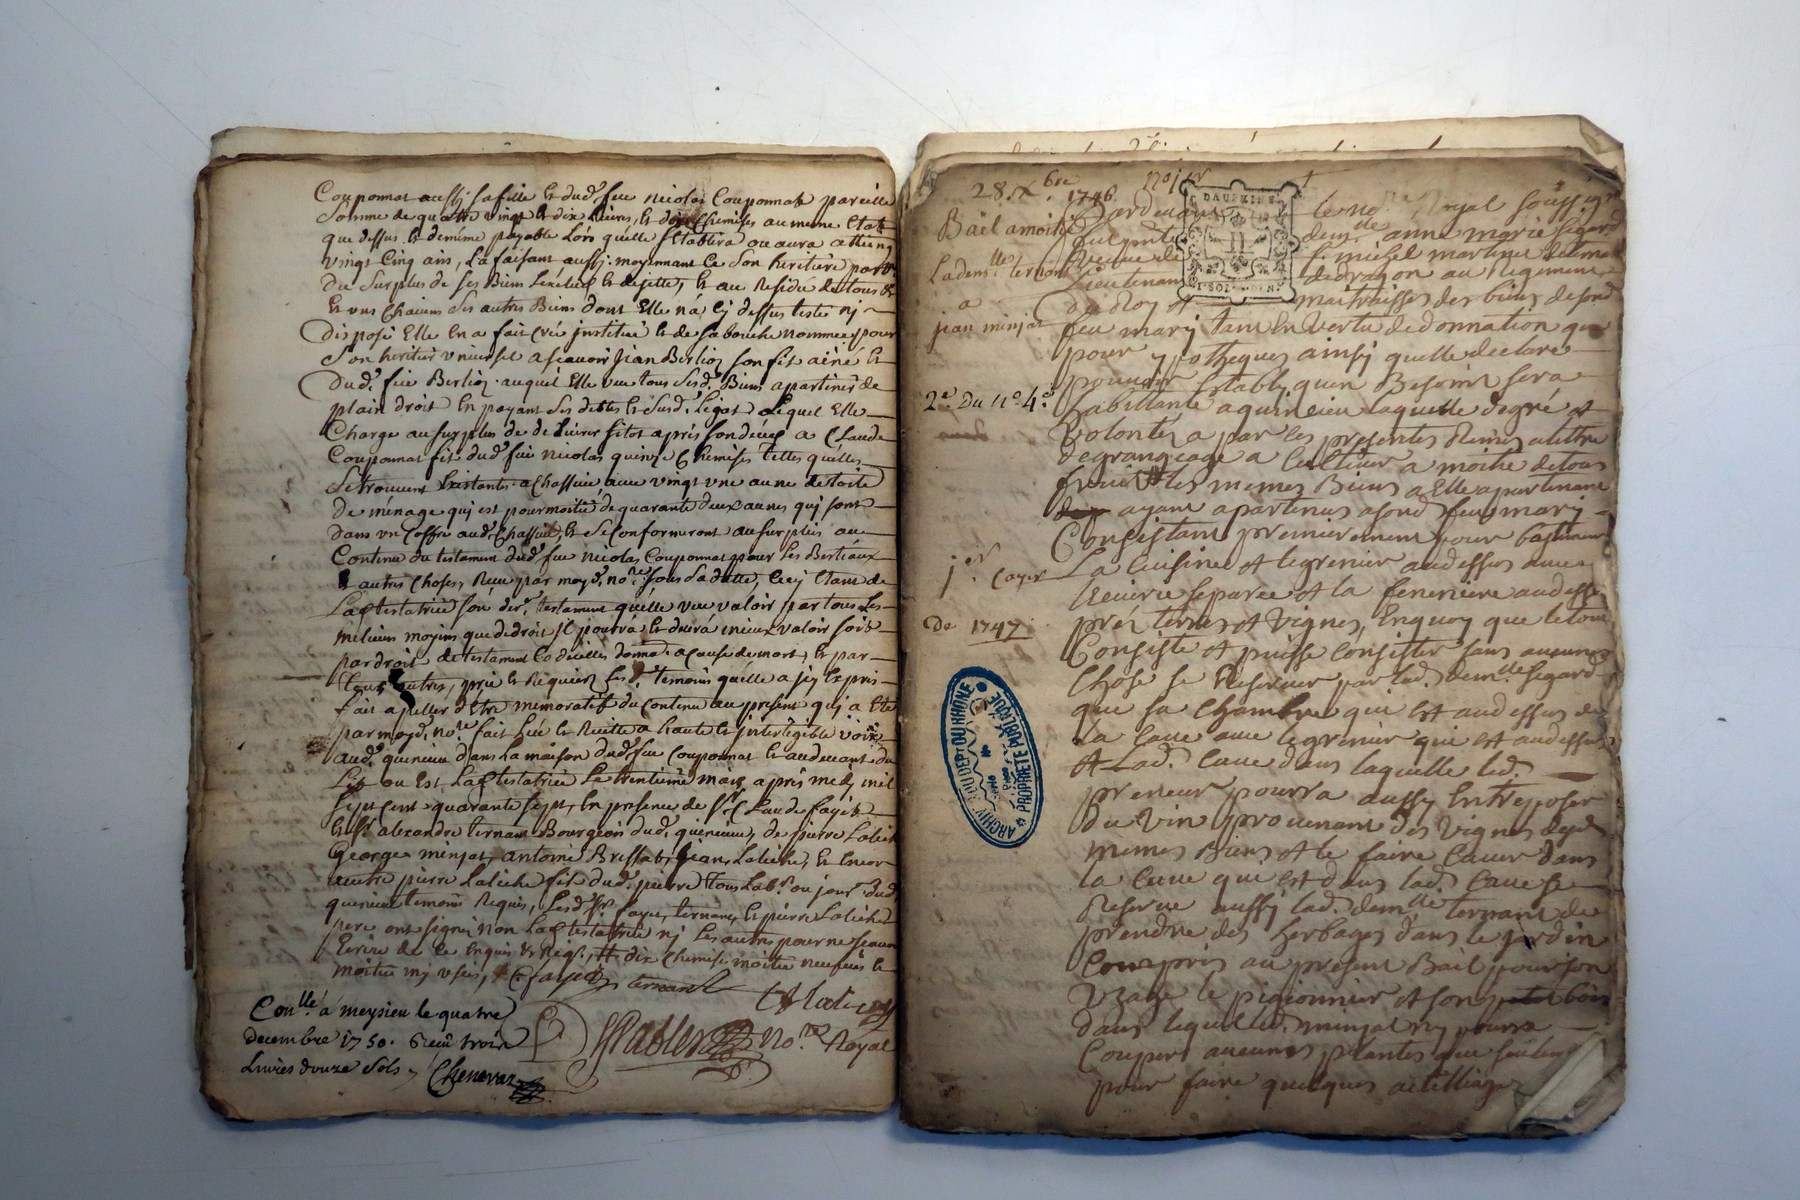 Couponnat aussy sa fille & dud. feu nicolas Couponnat pareille
Somme de quattre vingt & dix Livres, & dix Chemises au meme Etat
que dessus & de méme payable Lors quelle s'Etablira ou aura atteint
vingt Cinq ans, La faisant aussy moyennant ce Son heritiere part.
Du Surplus de Ses Biens Lexclud & dejette, & au Residu de tous &
& vns Chacuns Ses autres Biens dont Elle na cy dessus testé nj
disposé Elle En a fait Creé jnstitué & de Sa bouche nommée pour
Son heritier vniversel a Scavoir jean Berlioz Son fils ainé &
Dud. feu Berlioz auquel Elle veu tous Sesd. Biens apartenir de
plain droit En payant Ses dettes & Susd. Legats Lequel Elle
Charge au Surplus de de Livrer Sitot aprés Son décés a Claude
Couponnat fils dud. feu nicolas quinze Chemises telles quelles
Se trouvent Existantes a Chassieu avec vingt vne aune de toile
de menage quj est pour moitié de quarante deux aunes quj sont
dans vn Coffre aud. Chassieu, & Se Conformeront au Surplus au
Contenu du testament dud. feu nicolas Couponnat pour les Bestiaux
& autres Choses Receu par moyd. no.re Sous Sa datte, Cecy Etant de
Lad. testatrice Son der. testament quélle veu valoir par tous Les
meilieurs moyens que de droit jl pourrá & devrá mieux valoir Soit
par droit de testament Codicilles donna. a Cause de mort, & par
tous autres, prié & Requierz Lesd. temoins quélle a icy Expres
fait apeller dEtre memoratif du Contenu au present quj a Eté
par moyd. no.re fait Leu & Recitté a haute & jnteligible voix
aud. quincieu dans La maison dud. feu Couponnat & audevant du
Lit ou Est Lad. testatrice Le trentieme mars aprés midy mil
Sept Cent quarante Sept, En presence de Sr. Claude fayet
& Sr. alexandre ternant Bourgeois dud. quincieu, de pierre Laliche
George minjat, antoine Brissat, jean Laliche, & Encor
autre pierre Laliche fils dud. pierre tous Lab.rs ou jour. dud.
quincieu temoins Requis, Lesd. Srs. fayet, ternant, & pierre Laliche
pere ont signé non Lad. testatrice nj Les autres pour ne Scavoir
Ecrire de ce Enquis & Req.s, # dix Chemise moitie neufues &
moitie mj vsés, C fayet ternant
no.re Royal
Con.llé á meysieu le quatre
decembre 1750. Receu trois
Livres douze Sols
Chenevaz
28. X.bre 1746
Bail a moitié
La dem.lle ternant
a
jean minjat
2.e Du N.o 4.e
1.er Cayer
De 1747
DAUPHINÉ
royal soussigné
dem.lle anne marie segard
Lieutenant de dragon au regiment
Du Roy et maitraisse des biens de son d.
feu mary tant En vertu de donnation que
pour ypotheques ainsy quelle declare
pouvoir Establir quen Besoint sera
habittante a quincieu laquelle de gré et
volontés a par les presentes Remis a tittre
de grangeage a Cultiver a moitié de tous
fruits les memes Biens a Elle apartenant
ayant apartenus a son d. feu mary
Consistant premierement pour bastiment
La Cuisine et le grenier au dessus avec
Lecuirie separée et la feneniere au dessus
prés terres et vignes, Enquoy que le tout
Consiste et puisse Consister sans aucunes
Chose se Reserver par lad. dem.lle segard
que sa Chambre qui est au dessus de
La Cave avec le grenier qui est au dessus
et Lad. Cave dans laquelle led.
preneur pourra aussy Entreposer
du vin provenant des vignes desd.
memes Biens et le faire Cuver dans
la Cuve qui est dans lad. Cave se
Reserve aussy lad. dem.lle ternant de
prendre des herbages dans le jardin
Compris au present Bail pour son
Vzage le pigionnier et son bois
dans lequel led. minjat ny pourra
Couper aucunes plantes que seulement
pour faire quelques attelliages
ARCHIVES DU DEPT DU RHÔNE
PROPRIETE PUBLIQUE